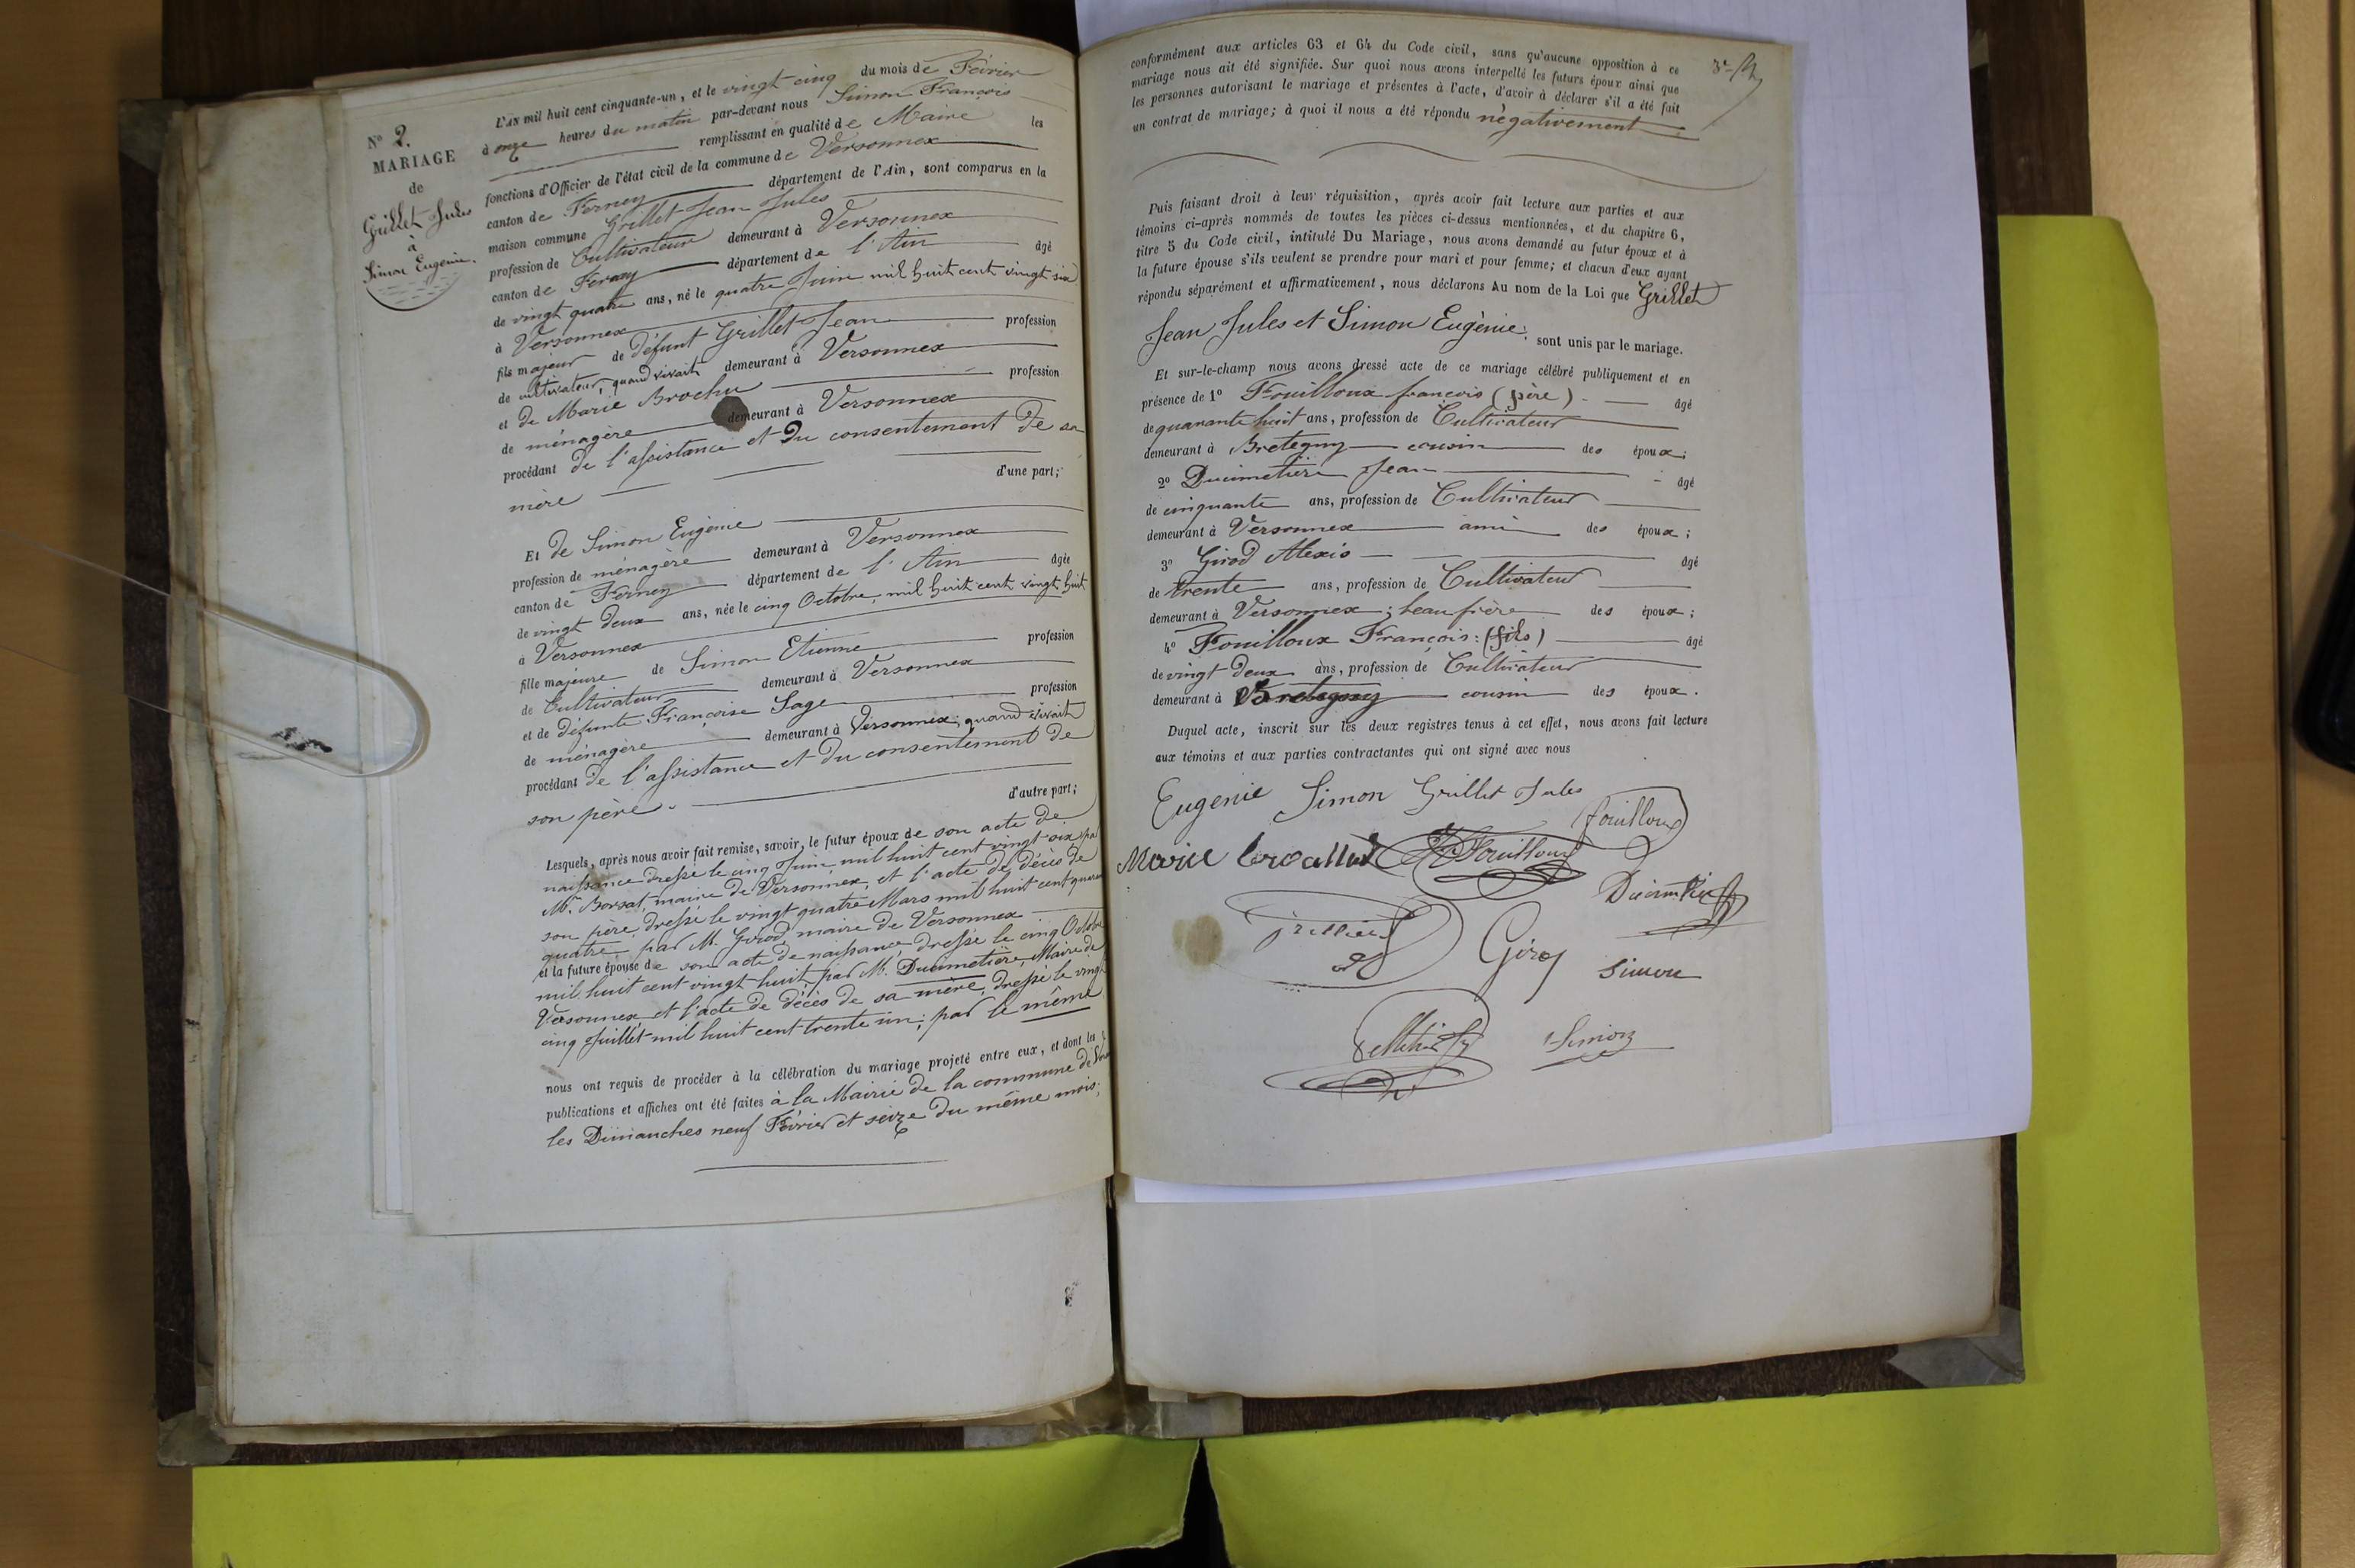 N° 2.
MARIAGE
de
Grillet Jules
à
Simon Eugénie.
L'AN mil huit cent cinquante-un, et le vingt cinq du mois de Février
à onze heures du matin par-devant nous Simon François
remplissant en qualité de Maire les
fonctions d'Officier de l'état civil de la commune de Versonnex
canton de Ferney département de l'Ain, sont comparus en la
maison commune Grillet Jean Jules
profession de Cultivateur demeurant à Versonnex
canton de Ferney département de l'Ain âgé
de vingt quatre ans, né le quatre Juin mil huit cent vingt six
à Versonnex
fils majeur de défunt Grillet Jean profession
de cultivateur, quand vivait demeurant à Versonnex
et de Marie Brochu profession
de ménagère demeurant à Versonnex
procédant de l'assistance et du consentement de sa
mère d'une part;
Et de Simon Eugénie
profession de ménagère demeurant à Versonnex
canton de Ferney département de l'Ain âgée
de vingt deux ans, née le cinq Octobre, mil huit cent vingt huit
à Versonnex
fille majeure de Simon Etienne profession
de Cultivateur demeurant à Versonnex
et de défunte Françoise Sage profession
de ménagère demeurant à Versonnex, quand vivait
procédant de l'assistance et du consentement de
son père. d'autre part;
Lesquels, après nous avoir fait remise, savoir, le futur époux de son acte de
naissance dressé le cinq Juin, mil huit cent vingt six, par
Mr. Borsat, maire de Versonnex, et l'acte de décès de
son père, dressé le vingt quatre Mars mil huit cent quarante
quatre par M. Girod, maire de Versonnex
et la future épouse de son acte de naissance, dressé le cinq Octobre
mil huit cent vingt huit, par M. Ducimetière, Maire de
Versonnex et l'acte de décès de sa mère, dressé le vingt
cinq Juillet mil huit cent trente un; par le même
nous ont requis de procéder à la célébration du mariage projeté entre eux, et dont les
publications et affiches ont été faites à la Mairie de la commune de
les Dimanches neuf Février et seize du même mois;
conformément aux articles 63 et 64 du Code civil, sans qu'aucune opposition à ce
mariage nous ait été signifiée. Sur quoi nous avons interpellé les futurs époux ainsi que
les personnes autorisant le mariage et présentes à l'acte, d'avoir à déclarer s'il a été fait
un contrat de mariage; à quoi il nous a été répondu négativement
Puis faisant droit à leur réquisition, après avoir fait lecture aux parties et aux
témoins ci-après nommés de toutes les pièces ci-dessus mentionnées, et du chapitre 6,
titre 5 du Code civil, intitulé Du Mariage, nous avons demandé au futur époux et à
la future épouse s'ils veulent se prendre pour mari et pour femme; et chacun d'eux ayant
répondu séparément et affirmativement, nous déclarons Au nom de la Loi que Grillet
Jean Jules et Simon Eugénie: sont unis par le mariage.
Et sur-le-champ nous avons dressé acte de ce mariage célébré publiquement et en
présence de 1° Fouilloux françois (père) âgé
de quarante huit ans, profession de Cultivateur
demeurant à Bretegny cousin des époux;
2° Ducimetière Jean âgé
de cinquante ans, profession de Cultivateur
demeurant à Versonnex ami des époux;
3° Girod Alexis âgé
de trente ans, profession de Cultivateur
demeurant à Versonnex; beau frère des époux;
4° Fouilloux François: (fils) âgé
de vingt deux ans, profession de Cultivateur
demeurant à Bretegny cousin des époux.
Duquel acte, inscrit sur les deux registres tenus à cet effet, nous avons fait lecture
aux témoins et aux parties contractantes qui ont signé avec nous
Eugenie Simon Grillet Jules
fouilloux
Marie Fouilloux
Girod Simon
Simon